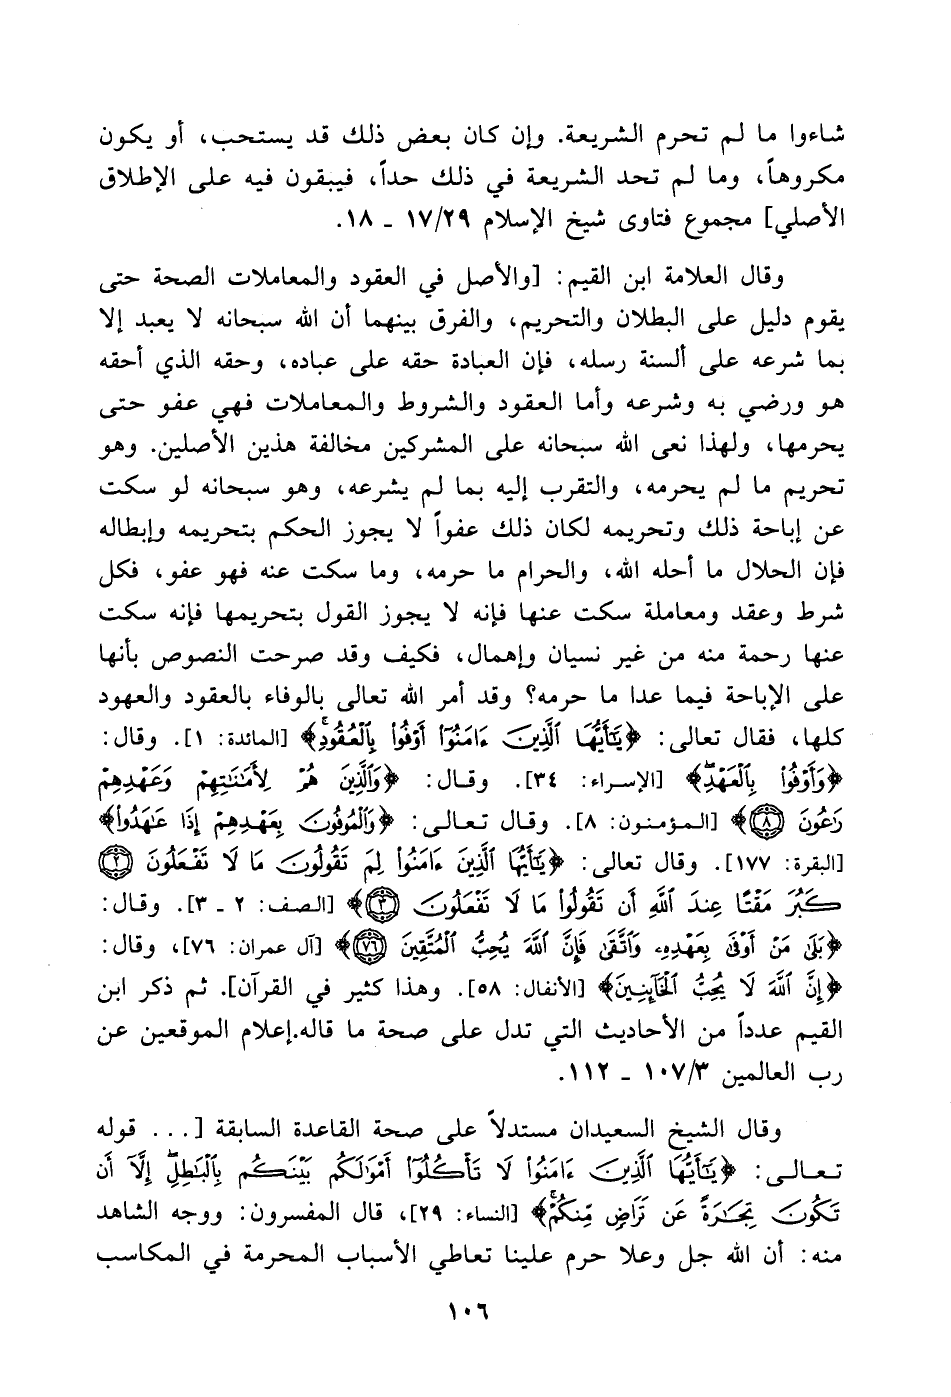 شاءوا ما لم تحرم الشريعة. وإن كان بعض ذلك قد يستحب، أو يكون
مكروهاً، وما لم تحد الشريعة في ذلك حداً، فيبقون فيه على الإطلاق
الأصلي] مجموع فتاوى شيخ الإسلام ١٧/٢٩ ـ ١٨.
وقال العلامة ابن القيم: [والأصل في العقود والمعاملات الصحة حتى
يقوم دليل على البطلان والتحريم، والفرق بينهما أن الله سبحانه لا يعبد إلا
بما شرعه على ألسنة رسله، فإن العبادة حقه على عباده، وحقه الذي أحقه
هو ورضي به وشرعه وأما العقود والشروط والمعاملات فهي عفو حتى
يحرمها، ولهذا نعى الله سبحانه على المشركين مخالفة هذين الأصلين. وهو
تحريم ما لم يحرمه، والتقرب إليه بما لم يشرعه، وهو سبحانه لو سكت
عن إباحة ذلك وتحريمه لكان ذلك عفواً لا يجوز الحكم بتحريمه وإبطاله
فإن الحلال ما أحله الله، والحرام ما حرمه، وما سكت عنه فهو عفو، فكل
شرط وعقد ومعاملة سكت عنها فإنه لا يجوز القول بتحريمها فإنه سكت
عنها رحمة منه من غير نسيان وإهمال، فكيف وقد صرحت النصوص بأنها
على الإباحة فيما عدا ما حرمه؟ وقد أمر الله تعالى بالوفاء بالعقود والعهود
كلها، فقال تعالى: ﴿يَٰٓأَيُّهَا ٱلَّذِينَ ءَامَنُوٓا۟ أَوْفُوا۟ بِٱلْعُقُودِۚ﴾ [المائدة: ١]. وقال:
﴿وَأَوْفُوا۟ بِٱلْعَهْدِۖ﴾ [الإسراء: ٣٤]. وقال: ﴿وَٱلَّذِينَ هُمْ لِأَمَٰنَٰتِهِمْ وَعَهْدِهِمْ
رَٰعُونَ ٨﴾ [المؤمنون: ٨]. وقال تعالى: ﴿وَٱلْمُوفُونَ بِعَهْدِهِمْ إِذَا عَٰهَدُوا۟﴾
[البقرة: ١٧٧]. وقال تعالى: ﴿يَٰٓأَيُّهَا ٱلَّذِينَ ءَامَنُوا۟ لِمَ تَقُولُونَ مَا لَا تَفْعَلُونَ ٢
كَبُرَ مَقْتًا عِندَ ٱللَّهِ أَن تَقُولُوا۟ مَا لَا تَفْعَلُونَ ٣﴾ [الصف: ٢ ـ ٣]. وقال:
﴿بَلَىٰ مَنْ أَوْفَىٰ بِعَهْدِهِۦ وَٱتَّقَىٰ فَإِنَّ ٱللَّهَ يُحِبُّ ٱلْمُتَّقِينَ ٧٦﴾ [آل عمران: ٧٦]، وقال:
﴿إِنَّ ٱللَّهَ لَا يُحِبُّ ٱلْخَآئِنِينَ﴾ [الأنفال: ٥٨]. وهذا كثير في القرآن]. ثم ذكر ابن
القيم عدداً من الأحاديث التي تدل على صحة ما قاله.إعلام الموقعين عن
رب العالمين ١٠٧/٣ ـ ١١٢.
وقال الشيخ السعيدان مستدلاً على صحة القاعدة السابقة [... قوله
تعالى: ﴿يَٰٓأَيُّهَا ٱلَّذِينَ ءَامَنُوا۟ لَا تَأْكُلُوٓا۟ أَمْوَٰلَكُم بَيْنَكُم بِٱلْبَٰطِلِ إِلَّآ أَن
تَكُونَ تِجَٰرَةً عَن تَرَاضٍ مِّنكُمْۚ﴾ [النساء: ٢٩]، قال المفسرون: ووجه الشاهد
منه: أن الله جل وعلا حرم علينا تعاطي الأسباب المحرمة في المكاسب
١٠٦